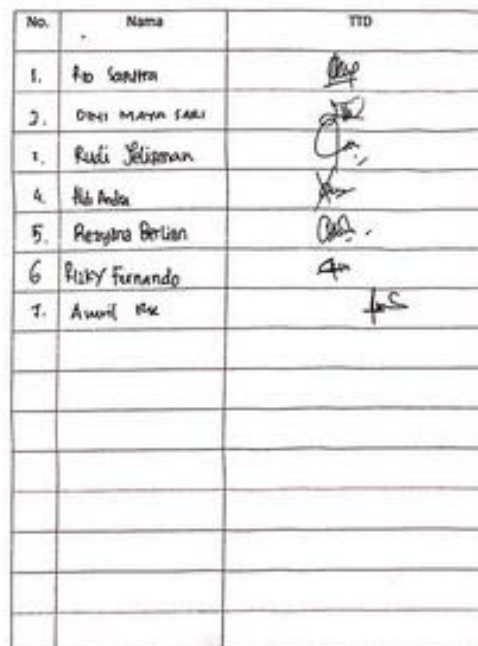 No. Nama TTD
1. Rio Sandra
2. DINI MAYA SARI
3. Rudi
4. Aldi Andra
5. Rezyana Berlian
6 Rizky Fernando
7. Amril